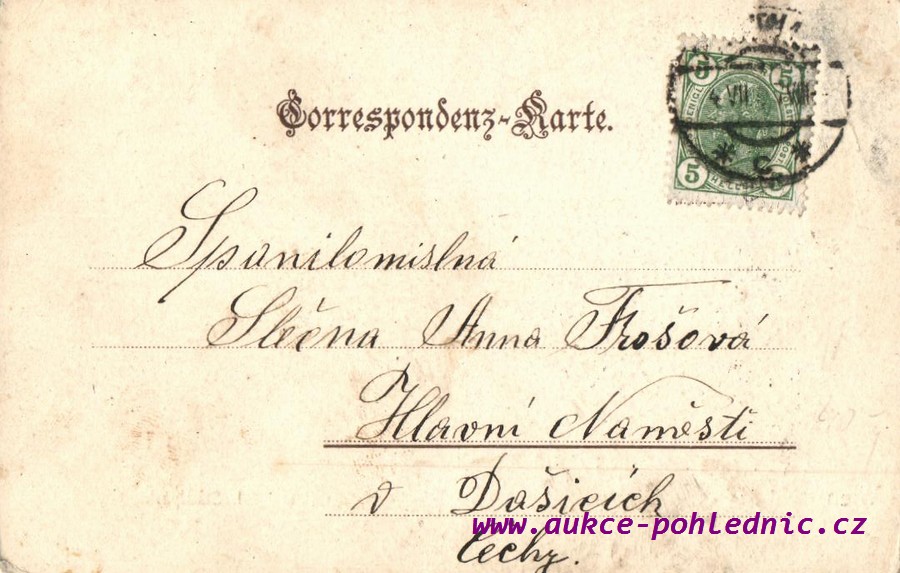 Correspondenz-Karte.
5 5
VII
* C *
5
HELLER
Spanilomislná
Slečna Anna Frošová
Hlavní Naměstí
v Dašicích
Čechy.
www.aukce-pohlednic.cz